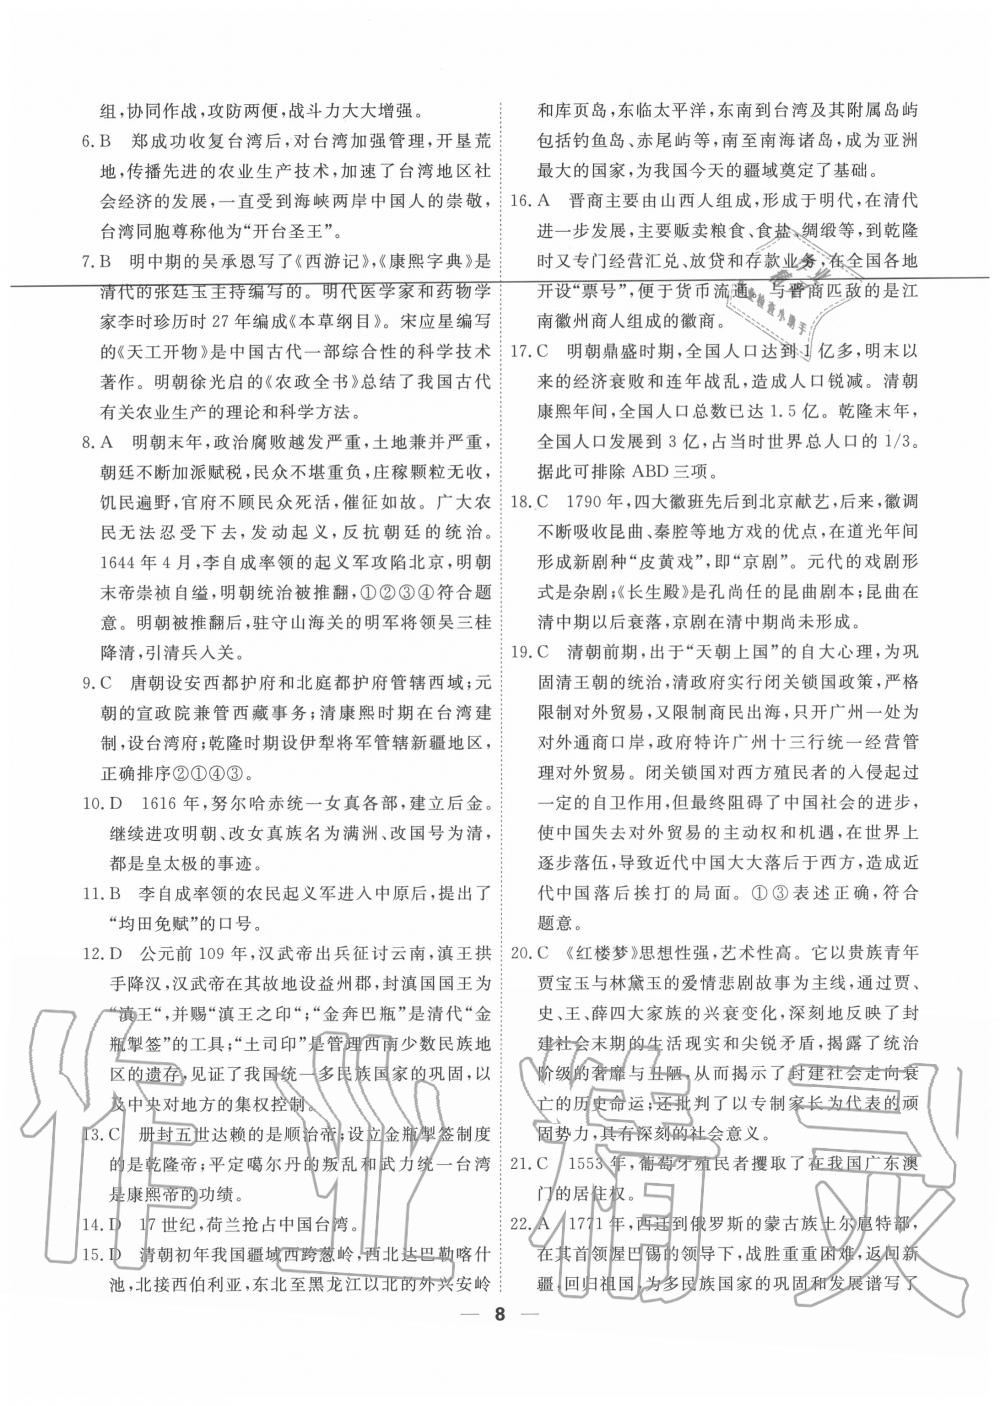 组,协同作战,攻防两便,战斗力大大增强。
6. B 郑成功收复台湾后,对台湾加强管理,开垦荒
地,传播先进的农业生产技术,加速了台湾地区社
会经济的发展,一直受到海峡两岸中国人的崇敬,
台湾同胞尊称他为“开台圣王”。
7. B 明中期的吴承恩写了《西游记》,《康熙字典》是
清代的张廷玉主持编写的。明代医学家和药物学
家李时珍历时 27 年编成《本草纲目》。宋应星编写
的《天工开物》是中国古代一部综合性的科学技术
著作。明朝徐光启的《农政全书》总结了我国古代
有关农业生产的理论和科学方法。
8. A 明朝末年,政治腐败越发严重,土地兼并严重,
朝廷不断加派赋税,民众不堪重负,庄稼颗粒无收,
饥民遍野,官府不顾民众死活,催征如故。广大农
民无法忍受下去,发动起义,反抗朝廷的统治。
1644 年 4 月,李自成率领的起义军攻陷北京,明朝
末帝崇祯自缢,明朝统治被推翻,①②③④符合题
意。明朝被推翻后,驻守山海关的明军将领吴三桂
降清,引清兵入关。
9. C 唐朝设安西都护府和北庭都护府管辖西域;元
朝的宣政院兼管西藏事务;清康熙时期在台湾建
制,设台湾府;乾隆时期设伊犁将军管辖新疆地区,
正确排序②①④③。
10. D 1616 年,努尔哈赤统一女真各部,建立后金。
继续进攻明朝、改女真族名为满洲、改国号为清,
都是皇太极的事迹。
11. B 李自成率领的农民起义军进入中原后,提出了
“均田免赋”的口号。
12. D 公元前 109 年,汉武帝出兵征讨云南,滇王拱
手降汉,汉武帝在其故地设益州郡,封滇国国王为
“滇王“,并赐“滇王之印”;“金奔巴瓶”是清代“金
瓶掣签”的工具;“土司印”是管理西南少数民族地
区的遗存,见证了我国统一多民族国家的巩固,以
及中央对地方的集权控制。
13. C 册封五世达赖的是顺治帝;设立金瓶掣签制度
的是乾隆帝;平定噶尔丹的叛乱和武力统一台湾
是康熙帝的功绩。
14. D 17 世纪,荷兰抢占中国台湾。
15. D 清朝初年我国疆域西跨葱岭,西北达巴勒喀什
池,北接西伯利亚,东北至黑龙江以北的外兴安岭
和库页岛,东临太平洋,东南到台湾及其附属岛屿
包括钓鱼岛、赤尾屿等,南至南海诸岛,成为亚洲
最大的国家,为我国今天的疆域奠定了基础。
16. A 晋商主要由山西人组成,形成于明代,在清代
进一步发展,主要贩卖粮食、食盐、绸缎等,到乾隆
时又专门经营汇兑、放贷和存款业务,在全国各地
开设“票号”,便于货币流通。与晋商匹敌的是江
南徽州商人组成的徽商。
17. C 明朝鼎盛时期,全国人口达到 1 亿多,明末以
来的经济衰败和连年战乱,造成人口锐减。清朝
康熙年间,全国人口总数已达 1.5 亿。乾隆末年,
全国人口发展到 3 亿,占当时世界总人口的 1/3。
据此可排除 ABD 三项。
18. C 1790 年,四大徽班先后到北京献艺,后来,徽调
不断吸收昆曲、秦腔等地方戏的优点,在道光年间
形成新剧种“皮黄戏”,即“京剧”。元代的戏剧形
式是杂剧;《长生殿》是孔尚任的昆曲剧本;昆曲在
清中期以后衰落,京剧在清中期尚未形成。
19. C 清朝前期,出于“天朝上国”的自大心理,为巩
固清王朝的统治,清政府实行闭关锁国政策,严格
限制对外贸易,又限制商民出海,只开广州一处为
对外通商口岸,政府特许广州十三行统一经营管
理对外贸易。闭关锁国对西方殖民者的入侵起过一
定的自卫作用,但最终阻碍了中国社会的进步,
使中国失去对外贸易的主动权和机遇,在世界上
逐步落伍,导致近代中国大大落后于西方,造成近
代中国落后挨打的局面。①③表述正确,符合
题意。
20. C 《红楼梦》思想性强,艺术性高。它以贵族青年
贾宝玉与林黛玉的爱情悲剧故事为主线,通过贾、
史、王、薛四大家族的兴衰变化,深刻地反映了封
建社会末期的生活现实和尖锐矛盾,揭露了统治
阶级的奢靡与丑陋,从而展示了封建社会走向衰
亡的历史命运;还批判了以专制家长为代表的顽
固势力,具有深刻的社会意义。
21. C 1553 年,葡萄牙殖民者攫取了在我国广东澳
门的居住权。
22. A 1771 年,西迁到俄罗斯的蒙古族土尔扈特部,
在其首领渥巴锡的领导下,战胜重重困难,返回新
疆,回归祖国,为多民族国家的巩固和发展谱写了
8
作业精灵